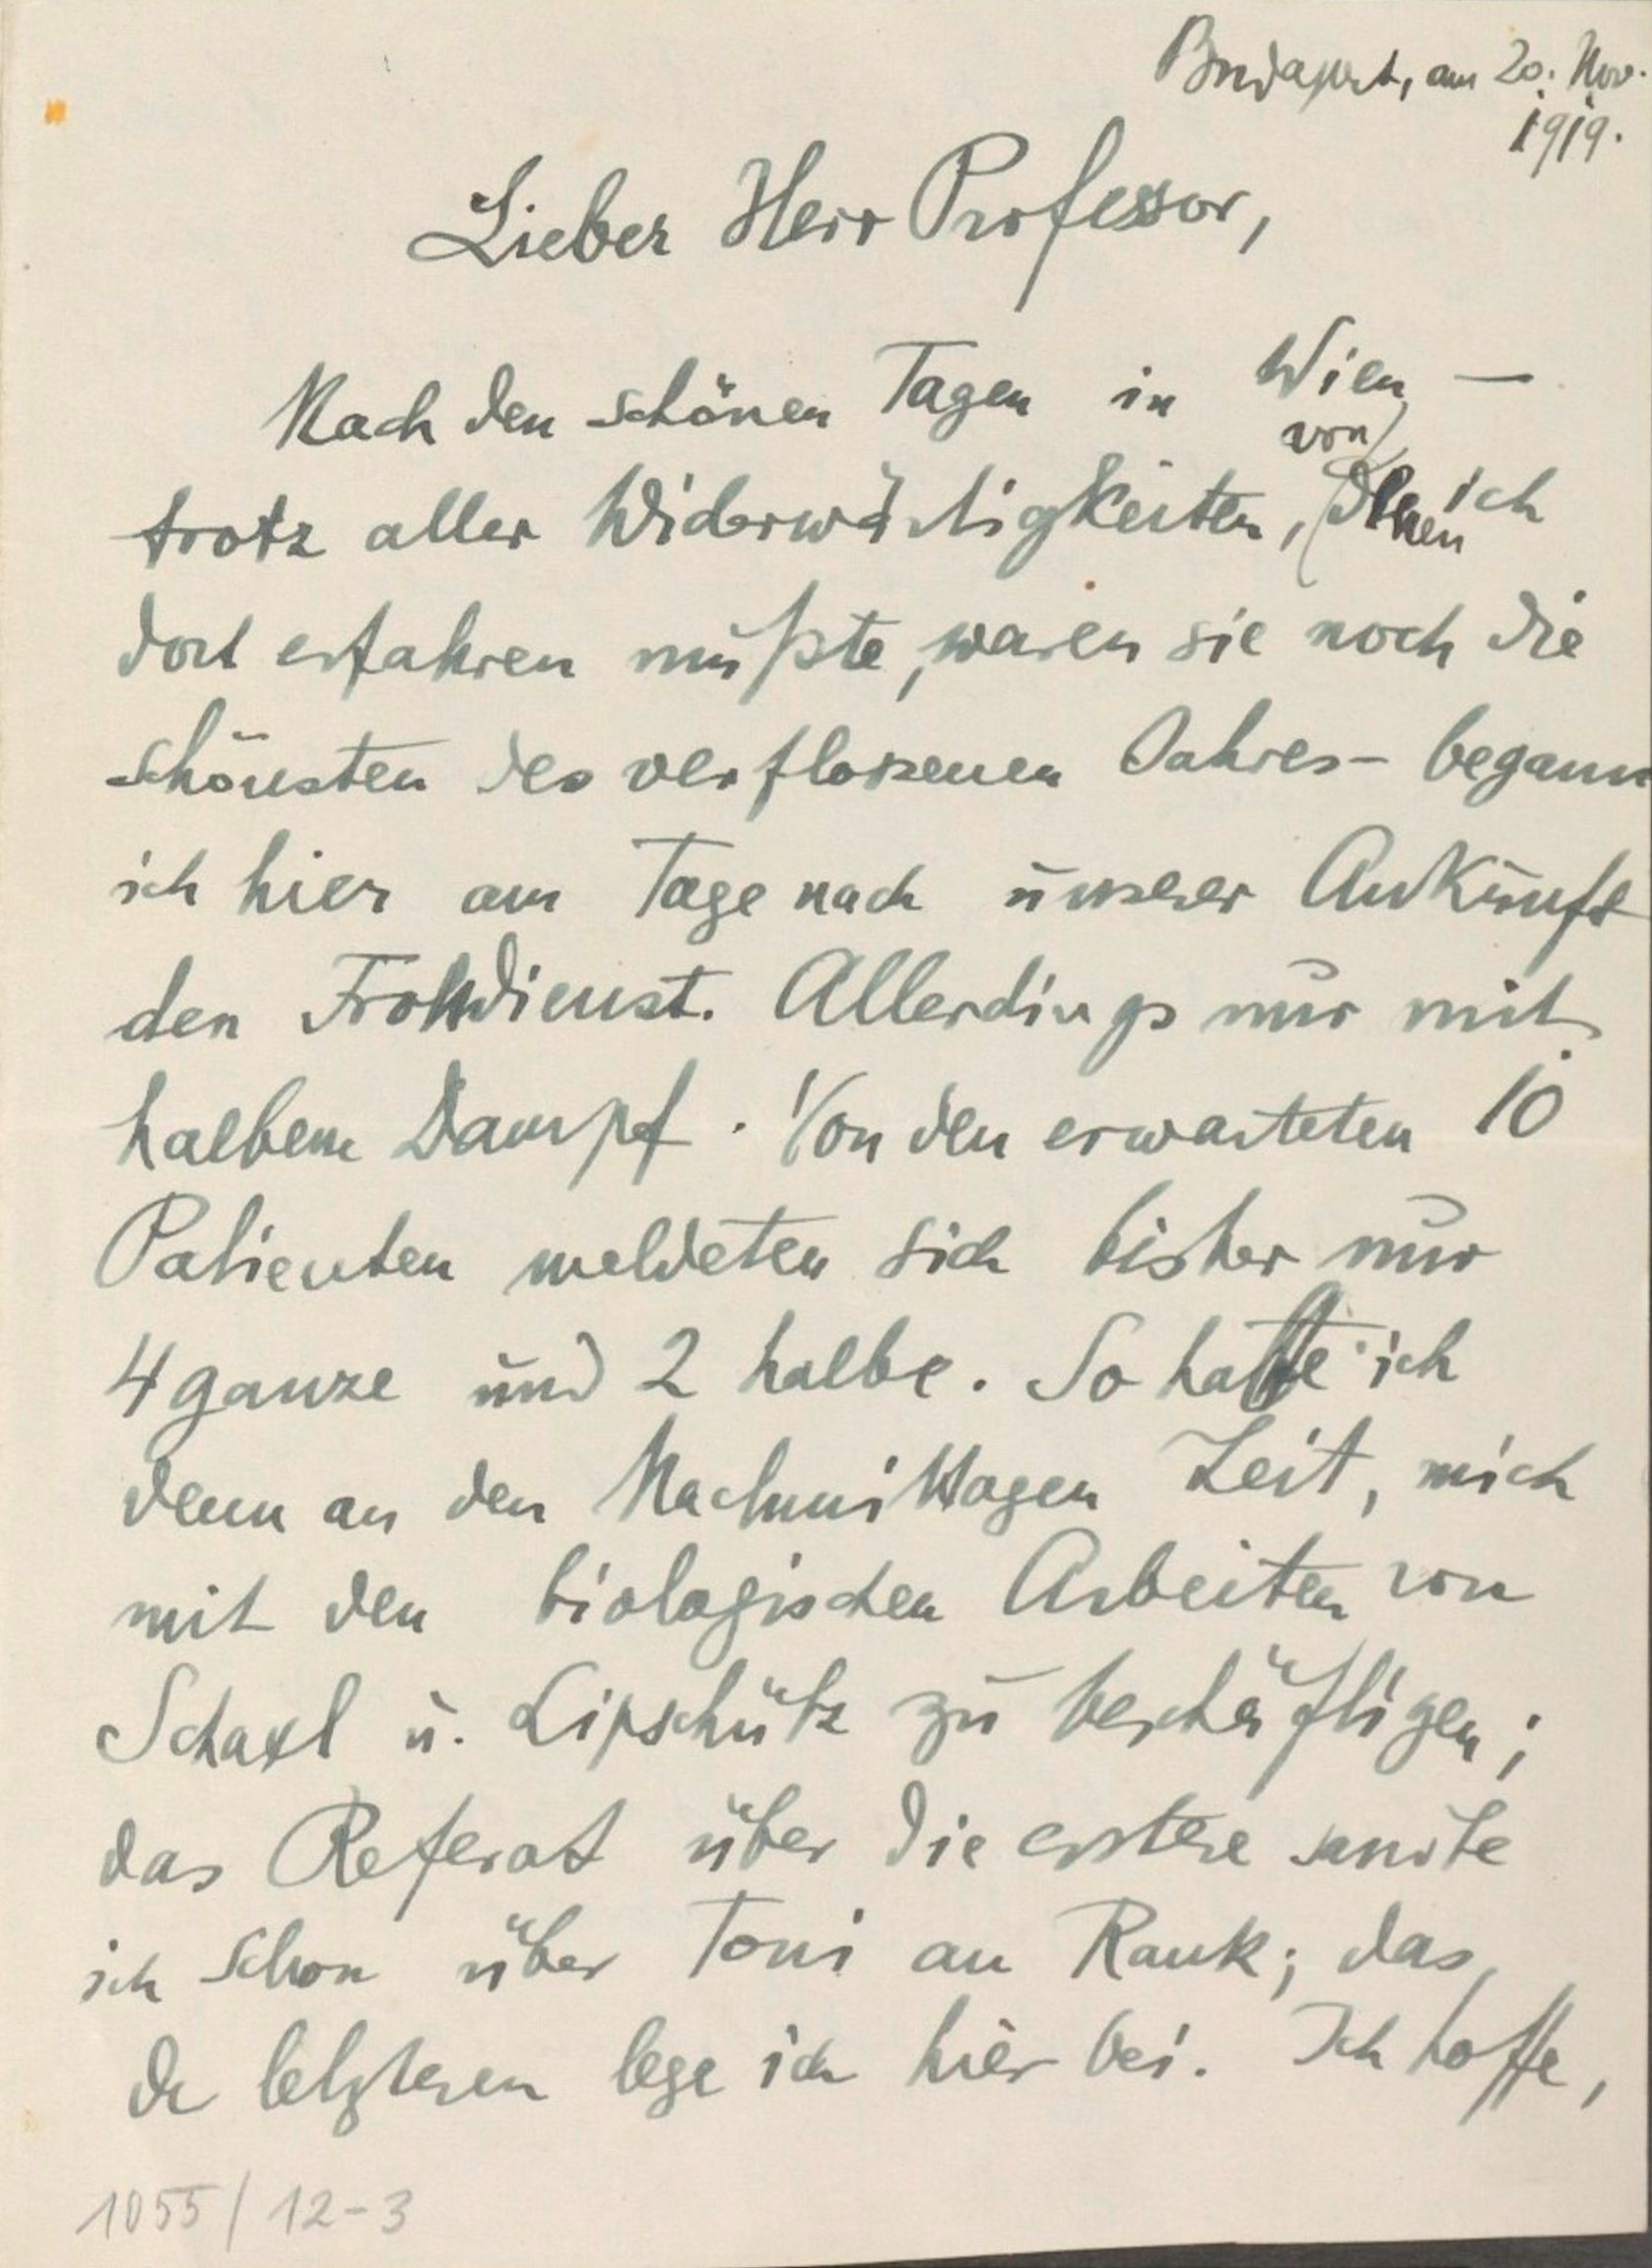 Budapest, am 20. Nov.
1919.
Lieber Herr Professor,
Nach den schönen Tagen in Wien —
trotz aller Widerwärtigkeiten, von denen ich
dort erfahren mußte, waren sie noch die
schönsten des verflossenen Jahres – begann
ich hier am Tage nach unserer Ankunft
den Frohndienst. Allerdings nur mit
halbem Dampf. Von den erwarteten 10
Patienten meldeten sich bisher nur
4 ganze und 2 halbe. So hatte ich
denn an den Nachmittagen Zeit, mich
mit den biologischen Arbeiten von
Schaxl u. Lipschütz zu beschäftigen;
das Referat über die erstere sandte
ich schon über Toni an Rank; das
der letzteren lege ich hier bei. Ich hoffe,
1055/12-3